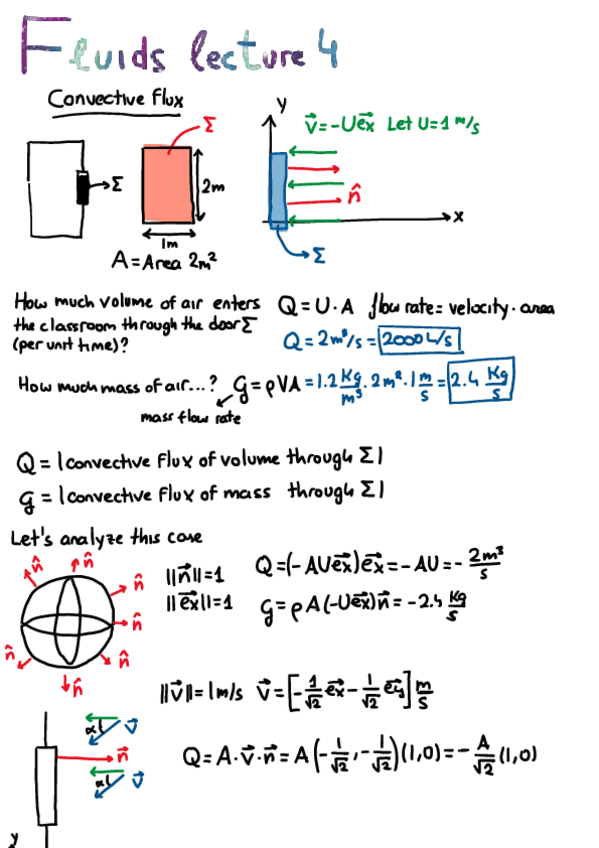 Fluids lecture 4
Convective Flux
Σ
Σ
2m
1m
A = Area 2m²
y
v⃗ = -Ue⃗x Let U=1 m/s
n̂
x
Σ
How much volume of air enters
the classroom through the door Σ
(per unit time)?
Q = U·A flow rate = velocity · area
Q = 2m³/s = 2000 L/s
How much mass of air...? G = ρVA = 1.2 Kg/m³ · 2m² · 1 m/s = 2.4 Kg/s
mass flow rate
Q = |convective flux of volume through Σ|
G = |convective flux of mass through Σ|
Let's analyze this case
n̂ n̂ n̂ n̂ n̂ n̂ n̂
||n⃗||=1
||e⃗x||=1
Q=(-AUe⃗x)e⃗x=-AU=-2m³/s
G=ρA(-Ue⃗x)n⃗=-2.4 Kg/s
||v⃗||=1m/s v⃗=[-1/√2 e⃗x - 1/√2 e⃗y] m/s
α v⃗
n⃗
α v⃗
Q=A·v⃗·n⃗=A(-1/√2,-1/√2)(1,0)=-A/√2 (1,0)
y